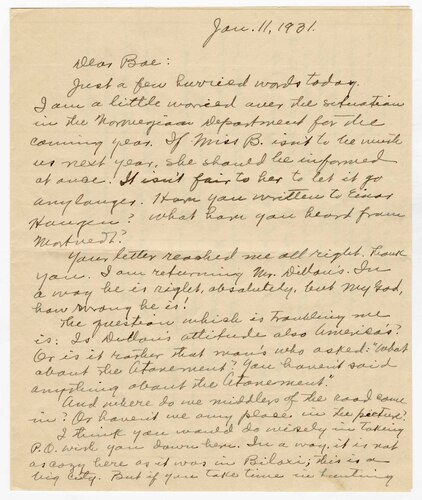 Jan. 11, 1931.
Dear Boe:
Just a few hurried words today.
I am a little worried over the situation
in the Norwegian Department for the
coming year. If Miss B. isn't to be with
us next year, she should be informed
at once. It isn't fair to her to let it go
any longer. Have you written to Einar
Haugen? What have you heard from
Your letter reached me all right, thank
you. I am returning Mr. Dillon's. In
a way he is right, absolutely, but My God,
how wrong he is!
The question which is troubling me
is: Is Dillon's attitude also America's?
Or is it rather that man's who asked: "What
about the Atonement? You haven't said
anything about the Atonement."
And where do we middlers of the road come
in? Or haven't we any place in the picture?
I think you would do wisely in taking
P.O. with you down here. In a way, it is not
as cozy here as it was in Biloxi; this is a
big city. But if you take time in hunting